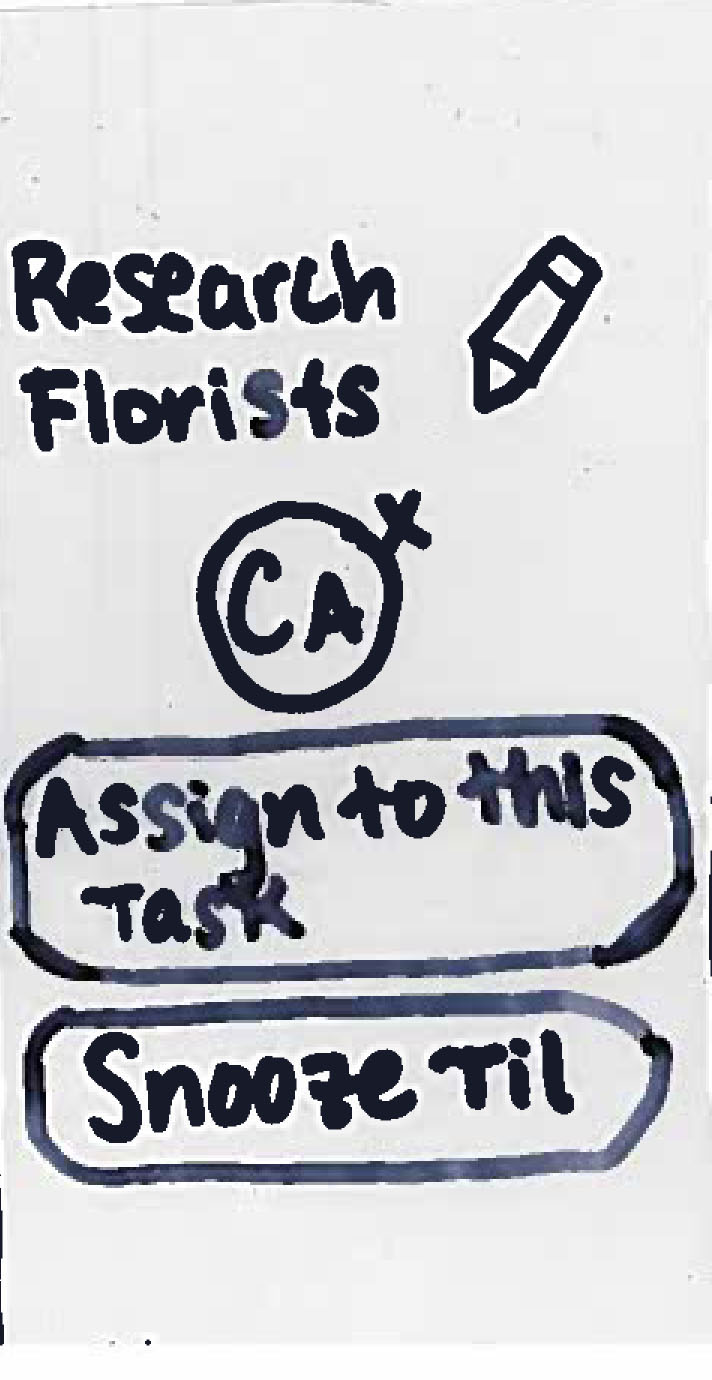 Research
Florists
X
CA
Assign to this
Task
Snooze Til